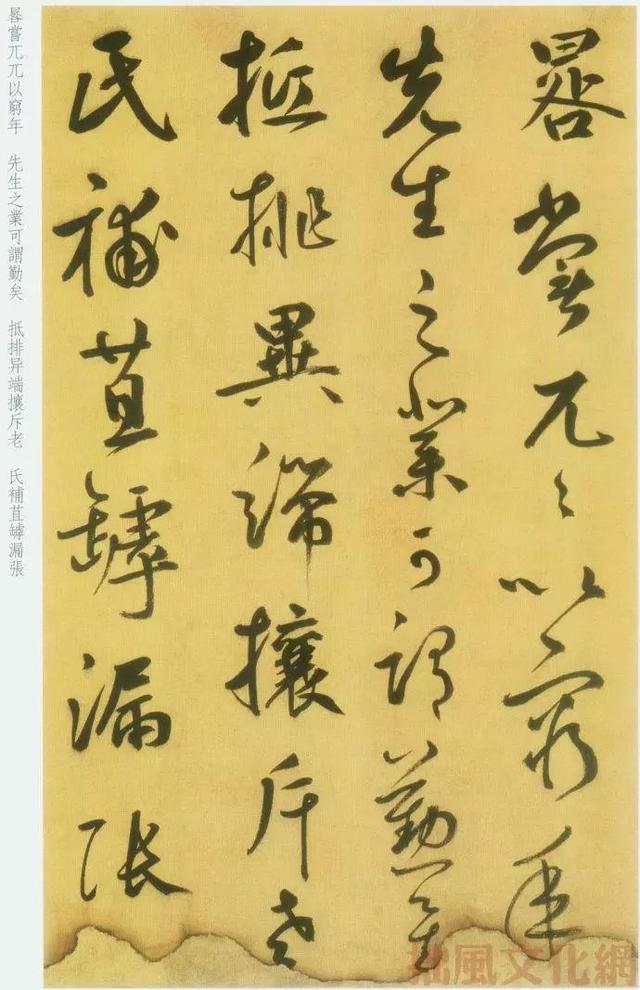 晷嘗兀々以窮年
先生之業可謂勤矣
抵排異端攘斥老
氏補苴罅漏張
晷嘗兀兀以窮年 先生之業可謂勤矣 抵排异端攘斥老 氏補苴罅漏張
拙風文化網